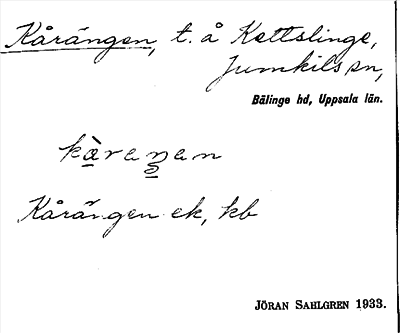 Kårängen, t. å Kettslinge,
Jumkils sn,
Bälinge hd, Uppsala län.
kàranan
Kårängen ek, kb
JÖRAN SAHLGREN 1933.